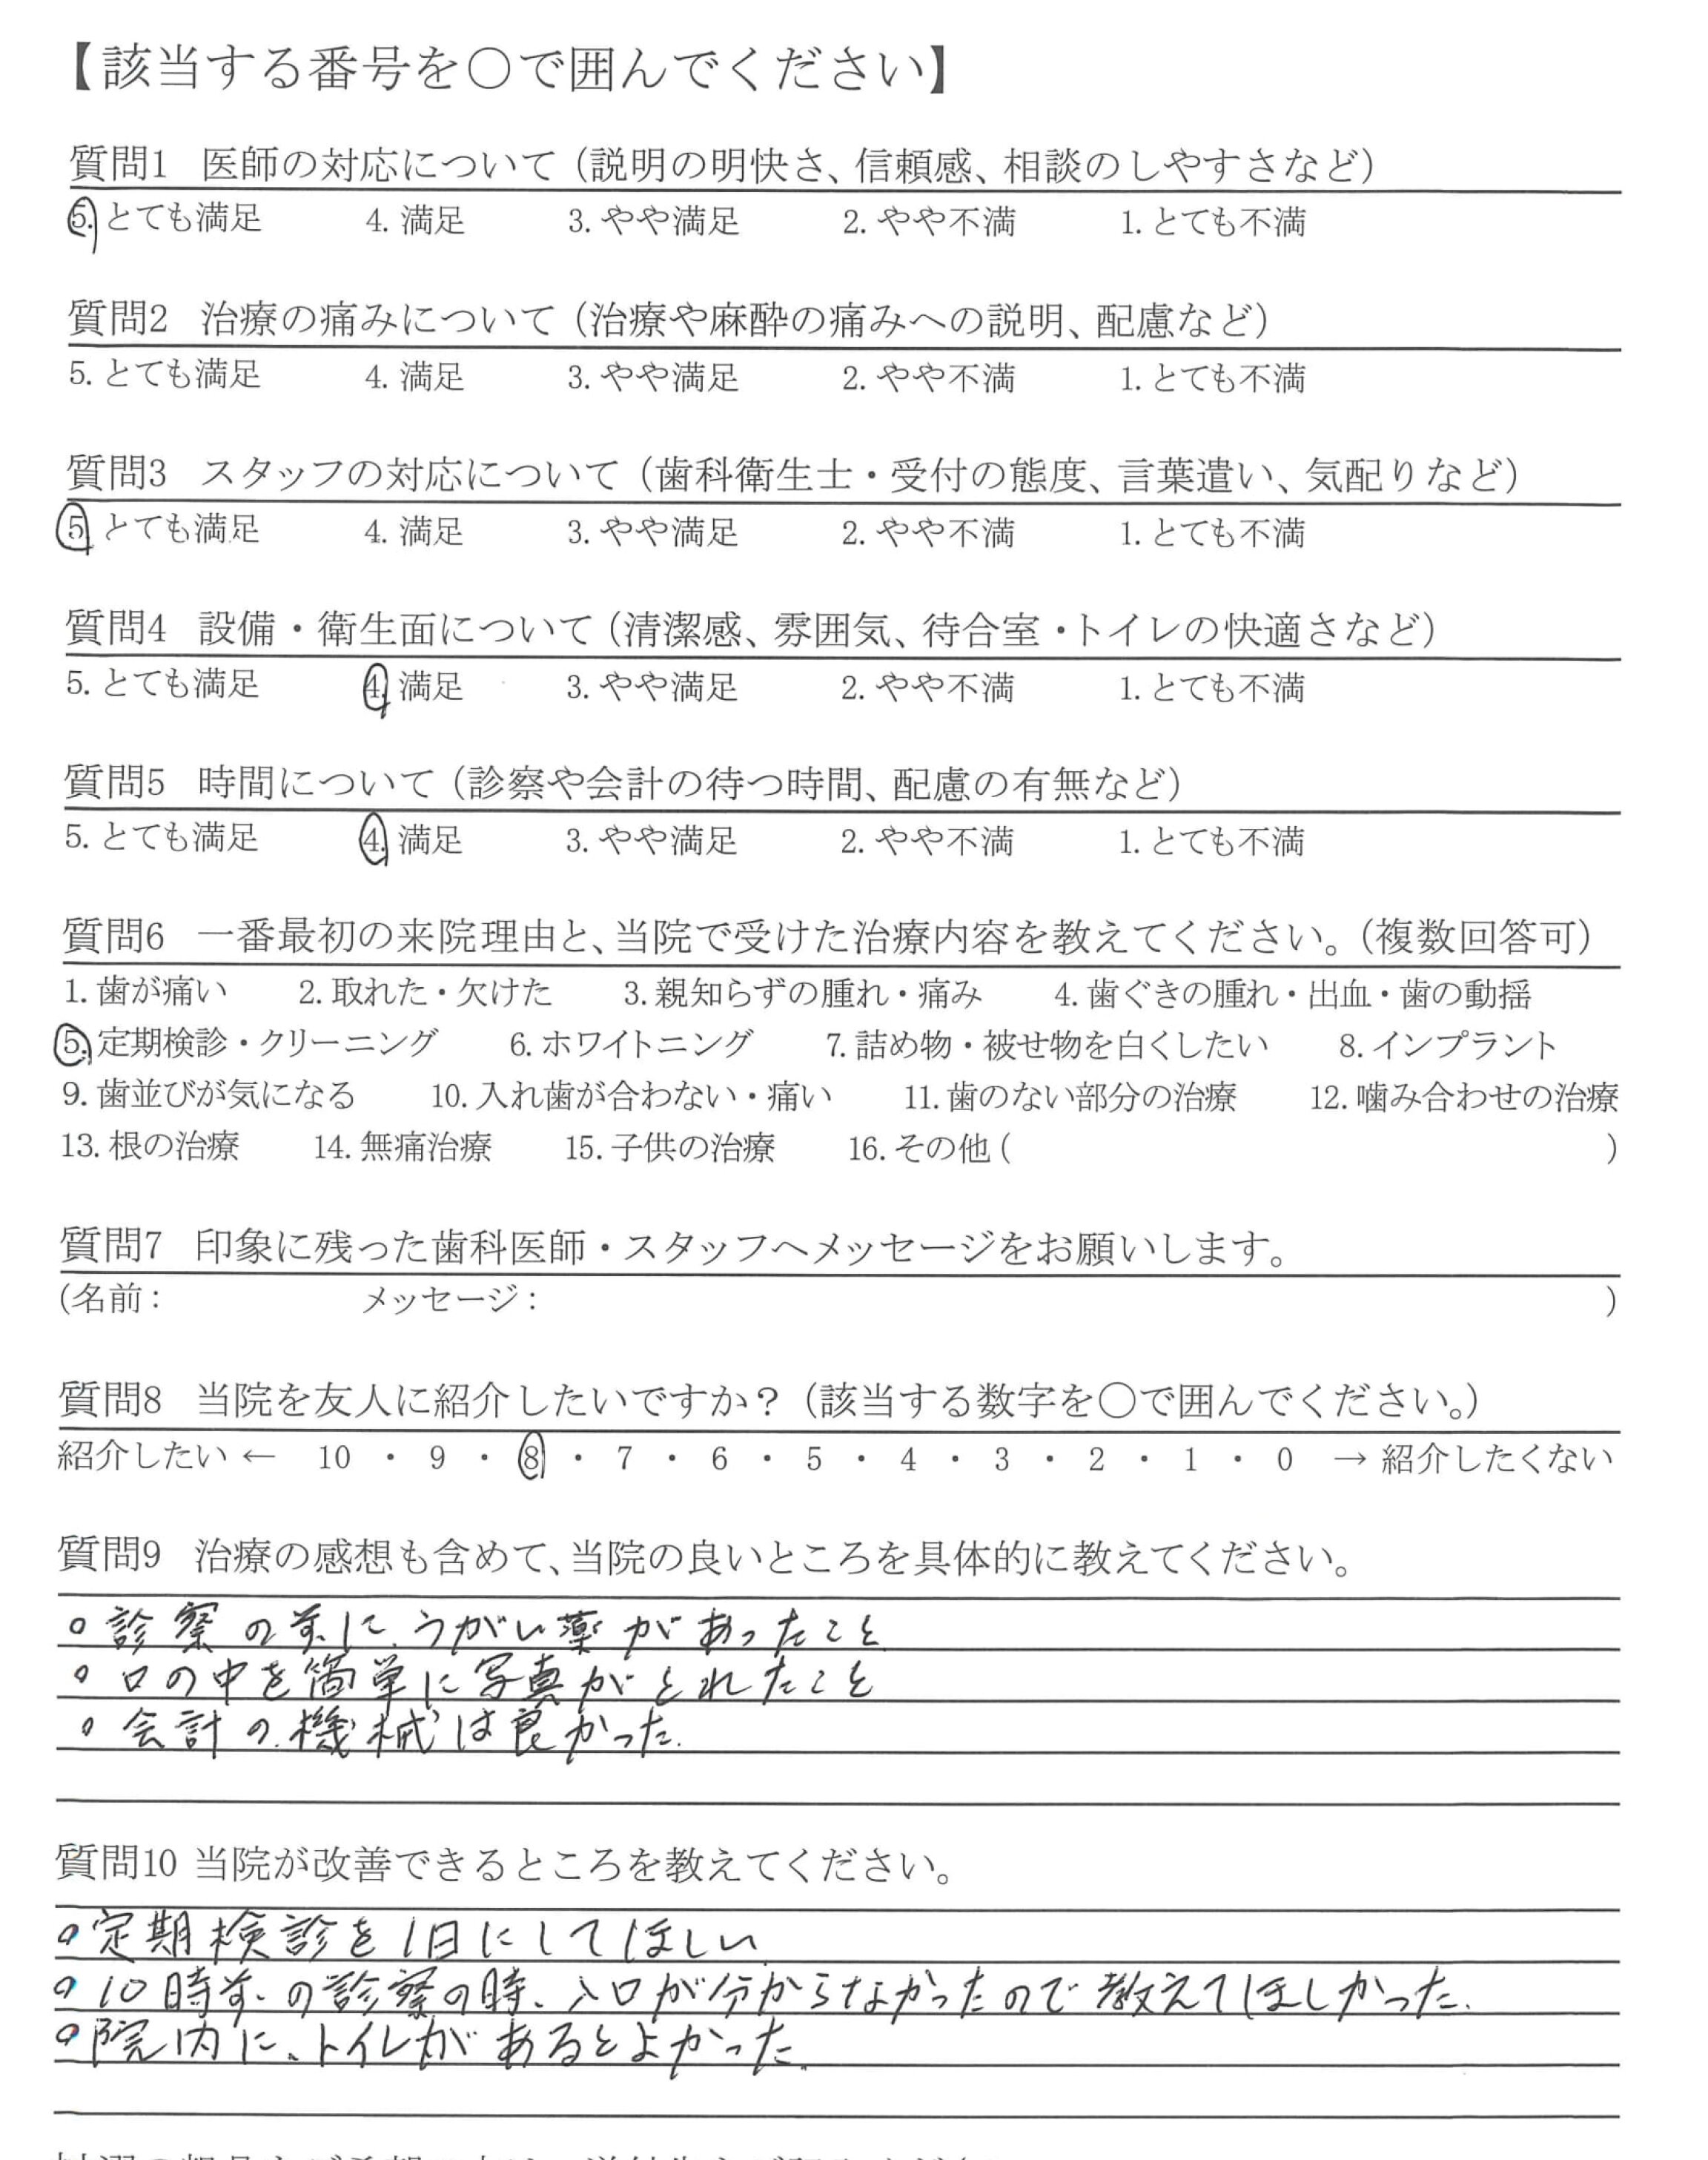 【該当する番号を○で囲んでください】
質問1 医師の対応について（説明の明快さ、信頼感、相談のしやすさなど）
5. とても満足 4. 満足 3. やや満足 2. やや不満 1. とても不満
質問2 治療の痛みについて（治療や麻酔の痛みへの説明、配慮など）
5. とても満足 4. 満足 3. やや満足 2. やや不満 1. とても不満
質問3 スタッフの対応について（歯科衛生士・受付の態度、言葉遣い、気配りなど）
5. とても満足 4. 満足 3. やや満足 2. やや不満 1. とても不満
質問4 設備・衛生面について（清潔感、雰囲気、待合室・トイレの快適さなど）
5. とても満足 4. 満足 3. やや満足 2. やや不満 1. とても不満
質問5 時間について（診察や会計の待つ時間、配慮の有無など）
5. とても満足 4. 満足 3. やや満足 2. やや不満 1. とても不満
質問6 一番最初の来院理由と、当院で受けた治療内容を教えてください。（複数回答可）
1. 歯が痛い 2. 取れた・欠けた 3. 親知らずの腫れ・痛み 4. 歯ぐきの腫れ・出血・歯の動揺
5. 定期検診・クリーニング 6. ホワイトニング 7. 詰め物・被せ物を白くしたい 8. インプラント
9. 歯並びが気になる 10. 入れ歯が合わない・痛い 11. 歯のない部分の治療 12. 噛み合わせの治療
13. 根の治療 14. 無痛治療 15. 子供の治療 16. その他 ( )
質問7 印象に残った歯科医師・スタッフへメッセージをお願いします。
(名前： メッセージ： )
質問8 当院を友人に紹介したいですか？（該当する数字を○で囲んでください。）
紹介したい ← 10 ・ 9 ・ 8 ・ 7 ・ 6 ・ 5 ・ 4 ・ 3 ・ 2 ・ 1 ・ 0 → 紹介したくない
質問9 治療の感想も含めて、当院の良いところを具体的に教えてください。
○診察の前に、うがい薬があったこと
○口の中を簡単に写真がとれたこと
○会計の機械は良かった。
質問10 当院が改善できるところを教えてください。
○定期検診を1日にしてほしい
○10時前の診察の時、入口が分からなかったので教えてほしかった。
○院内に、トイレがあるとよかった。